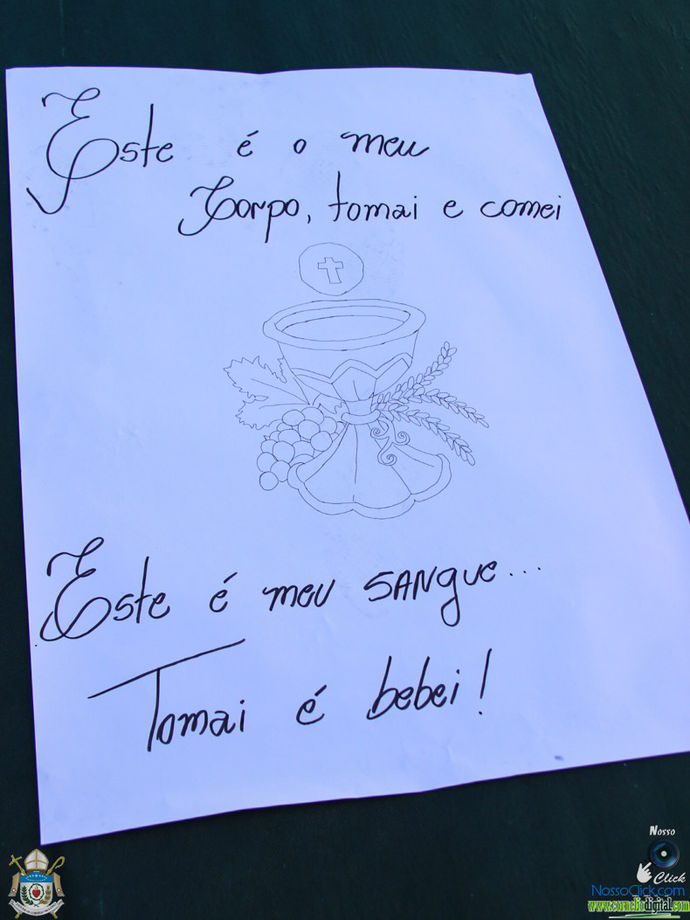 Este é o meu
Corpo, tomai e comei
Este é meu SANgue...
Tomai é bebei!
Nosso
Click
NossoClick.com
www.corneliodigital.com